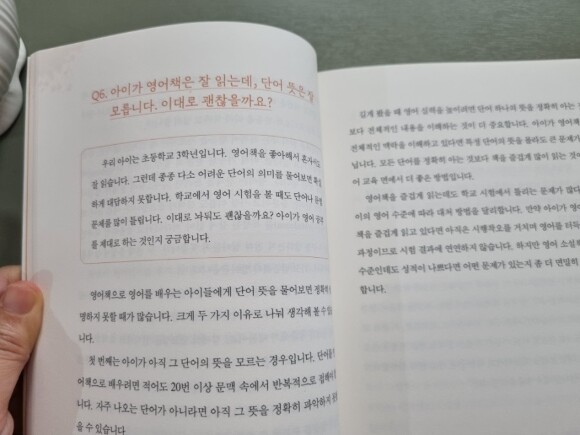 Q6. 아이가 영어책은 잘 읽는데, 단어 뜻은 잘
모릅니다. 이대로 괜찮을까요?
우리 아이는 초등학교 3학년입니다. 영어책을 좋아해서 혼자서도
잘 읽습니다. 그런데 종종 다소 어려운 단어의 의미를 물어보면
하게 대답하지 못합니다. 학교에서 영어 시험을 볼 때도 단어나
문제를 많이 틀립니다. 이대로 놔둬도 괜찮을까요? 아이가 영어
를 제대로 하는 것인지 궁금합니다.
영어책으로 영어를 배우는 아이들에게 단어 뜻을 물어보면 정확히
명하지 못할 때가 많습니다. 크게 두 가지 이유로 나눠 생각해 볼 수
니다.
첫 번째는 아이가 아직 그 단어의 뜻을 모르는 경우입니다. 단어를
어책으로 배우려면 적어도 20번 이상 문맥 속에서 반복적으로 접해야
니다. 자주 나오는 단어가 아니라면 아직 그 뜻을 정확히 파악하지
을 수 있습니다
길게 봤을 때 영어 실력을 높이려면 단어 하나의 뜻을 정확히 아는
보다 전체적인 내용을 이해하는 것이 더 중요합니다. 아이가 영어책
전체적인 맥락을 이해하고 있다면 특정 단어의 뜻을 몰라도 큰 문제가
닙니다. 모든 단어를 정확히 아는 것보다 책을 즐겁게 많이 읽는 것이
어 교육 면에서 더 좋은 방법입니다.
영어책을 즐겁게 읽는데도 학교 시험에서 틀리는 문제가 많다
이의 영어 수준에 따라 대처 방법을 달리합니다. 만약 아이가 영어
책을 즐겁게 읽고 있다면 아직은 시행착오를 거치며 영어를 터득
과정이므로 시험 결과에 연연하지 않습니다. 하지만 영어 소설책
수준인데도 성적이 나쁘다면 어떤 문제가 있는지 좀 더 면밀히
합니다.